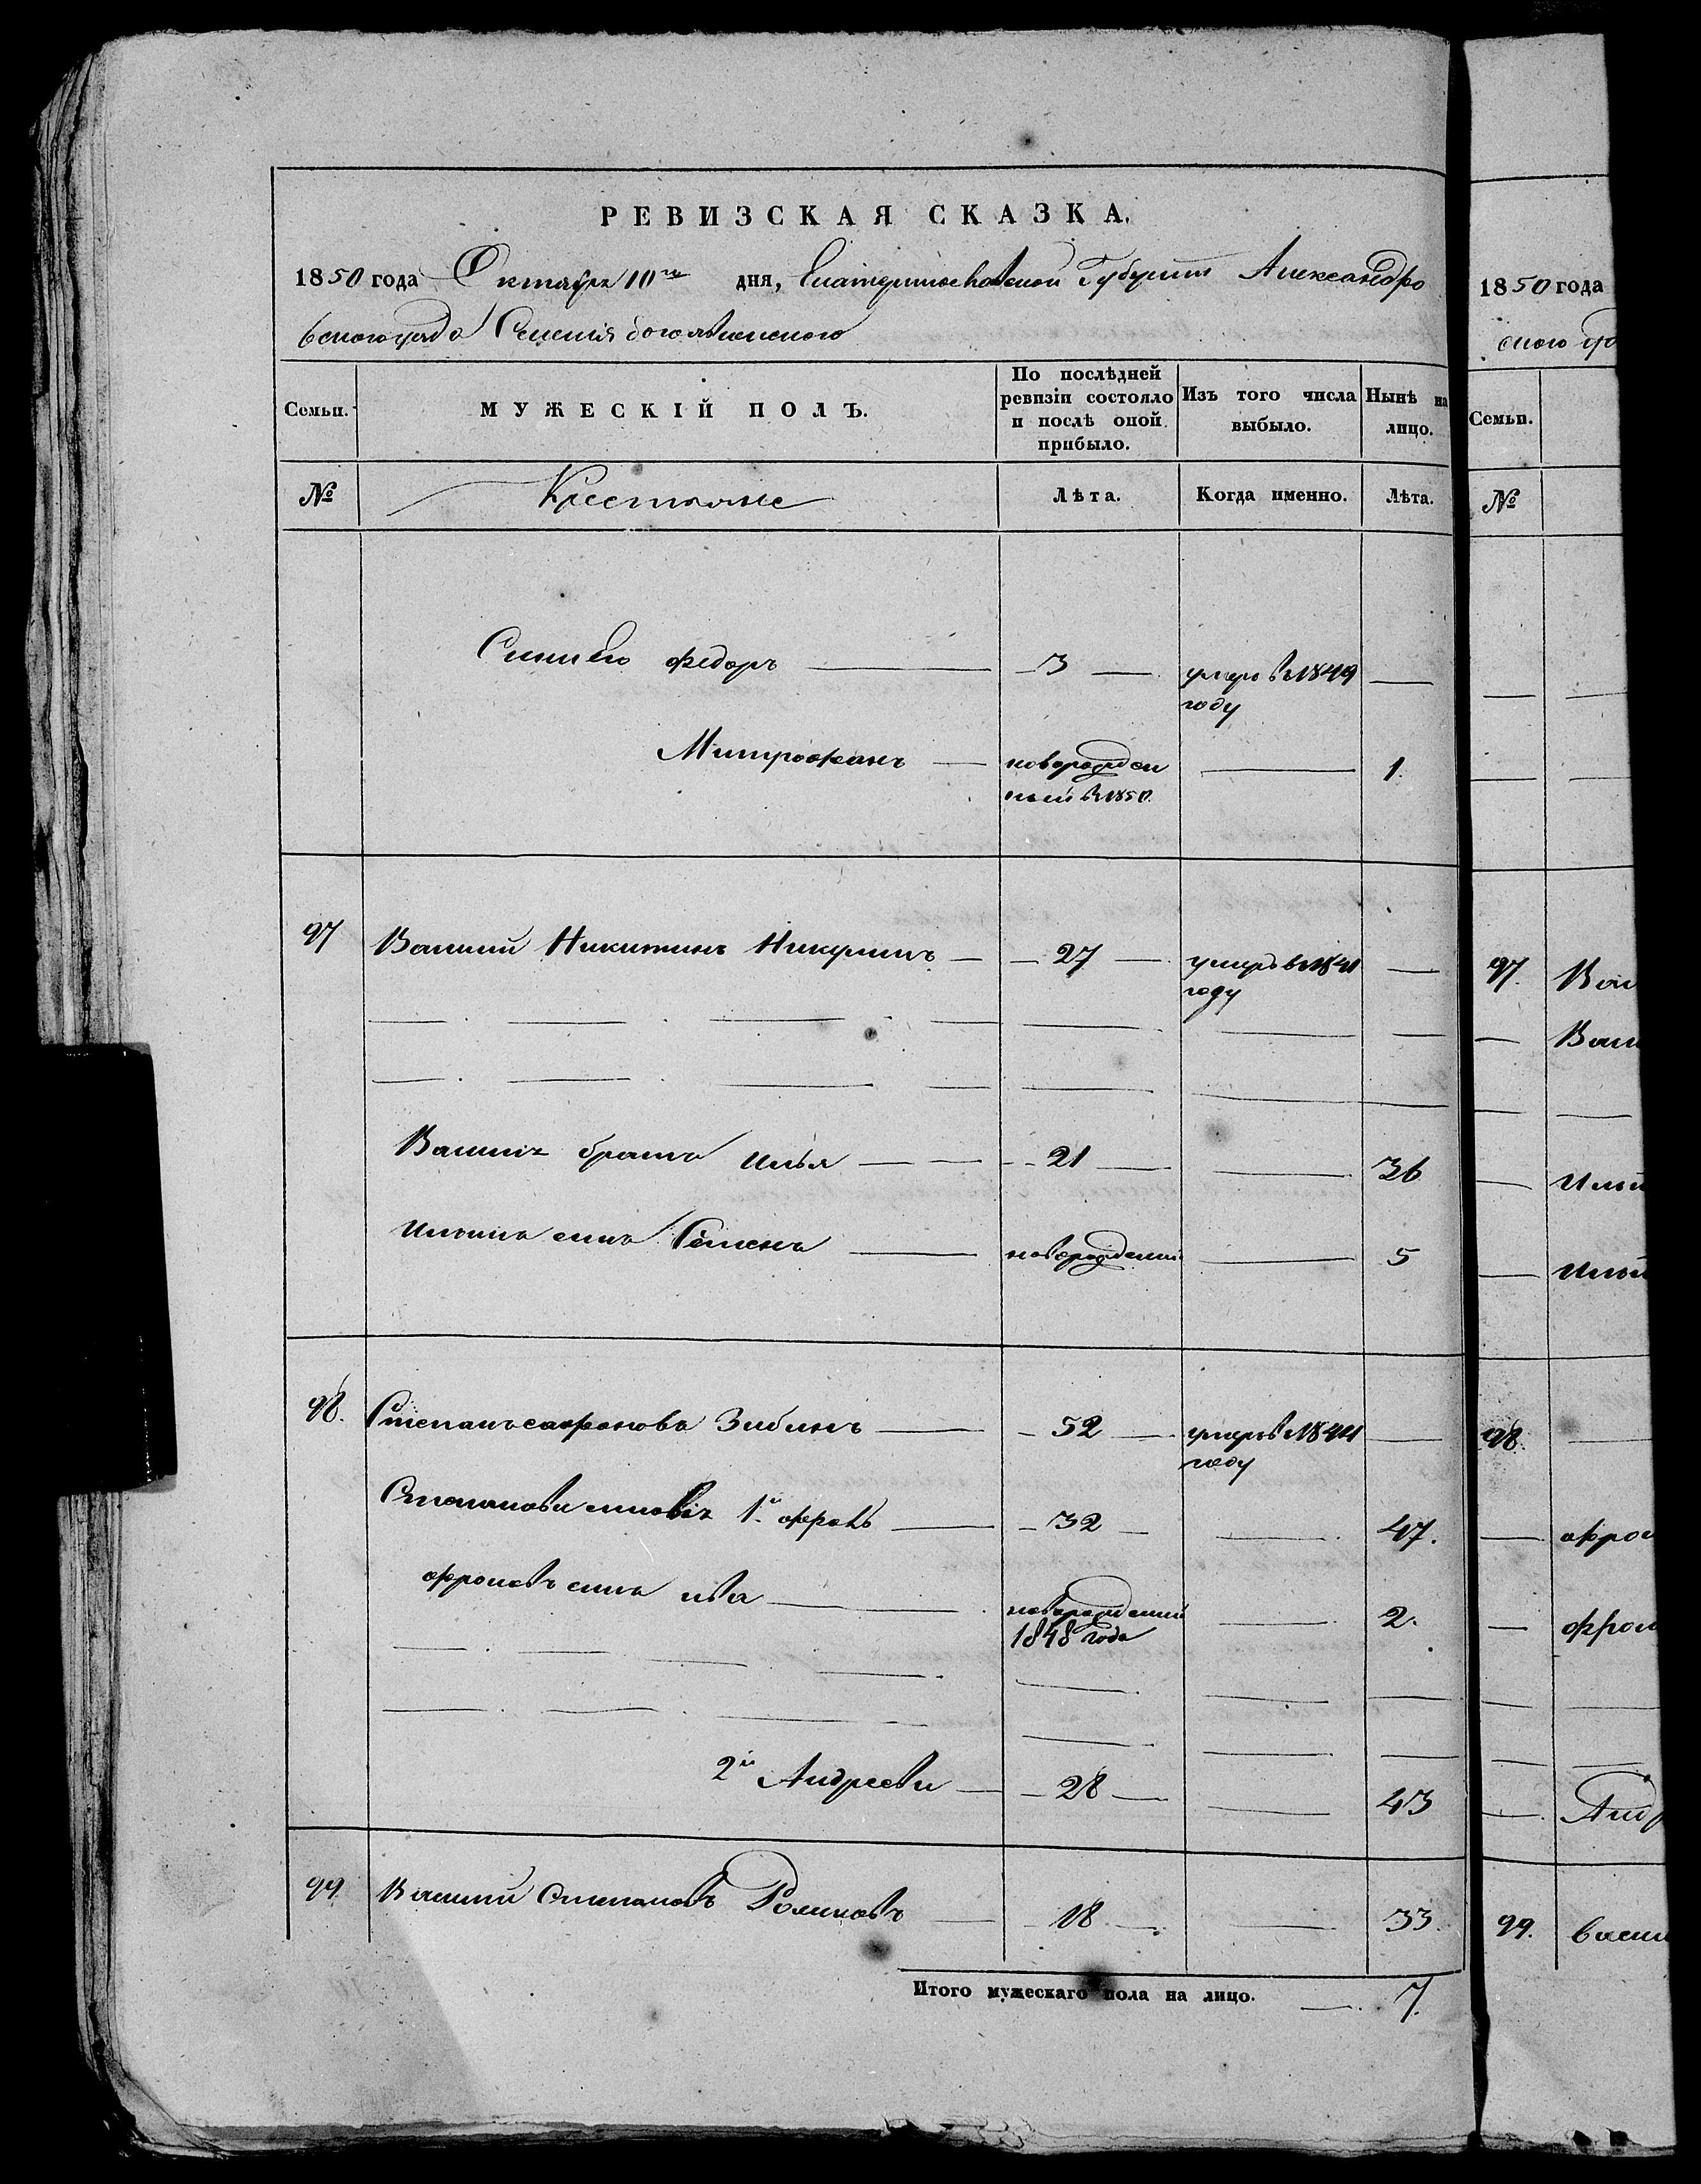 РЕВИЗСКАЯ СКАЗКА.
1850 года Октября 10го дня, Екатеринославской Губернии Александро
вского уезда Селения Богоявленского
Семьи. МУЖЕСКІЙ ПОЛЪ. По послѣдней ревизіи состояло и послѣ оной прибыло. Изъ того числа выбыло. Нынѣ на лицо.
№ Крестьяне Лѣта. Когда именно. Лѣта.
Федоръ 3 умеръ въ 1849
году
Митрофанъ новорожден 1.
ный въ 1850.
97 Василий Никитинъ Никулинъ 27 умеръ въ 1841
году
Василия братъ Илья 21 36
Ильинъ сынъ Семенъ новорожденный 5
98. Степанъ Сафроновъ Зибинъ 52 умеръ въ 1844
году
Степановы сыновья 1й Фролъ 32 47.
Фроловъ сынъ новорожденный 2.
1848 года
2й Андрей 28 43
99 Василий Степановъ 18 33.
Итого мужескаго пола на лицо. 7.
1850 года
ского
Семьи.
№
97. Вас
Васи
Ильи
Ильи
98.
Фрол
Фрол
Анд
99. Васи